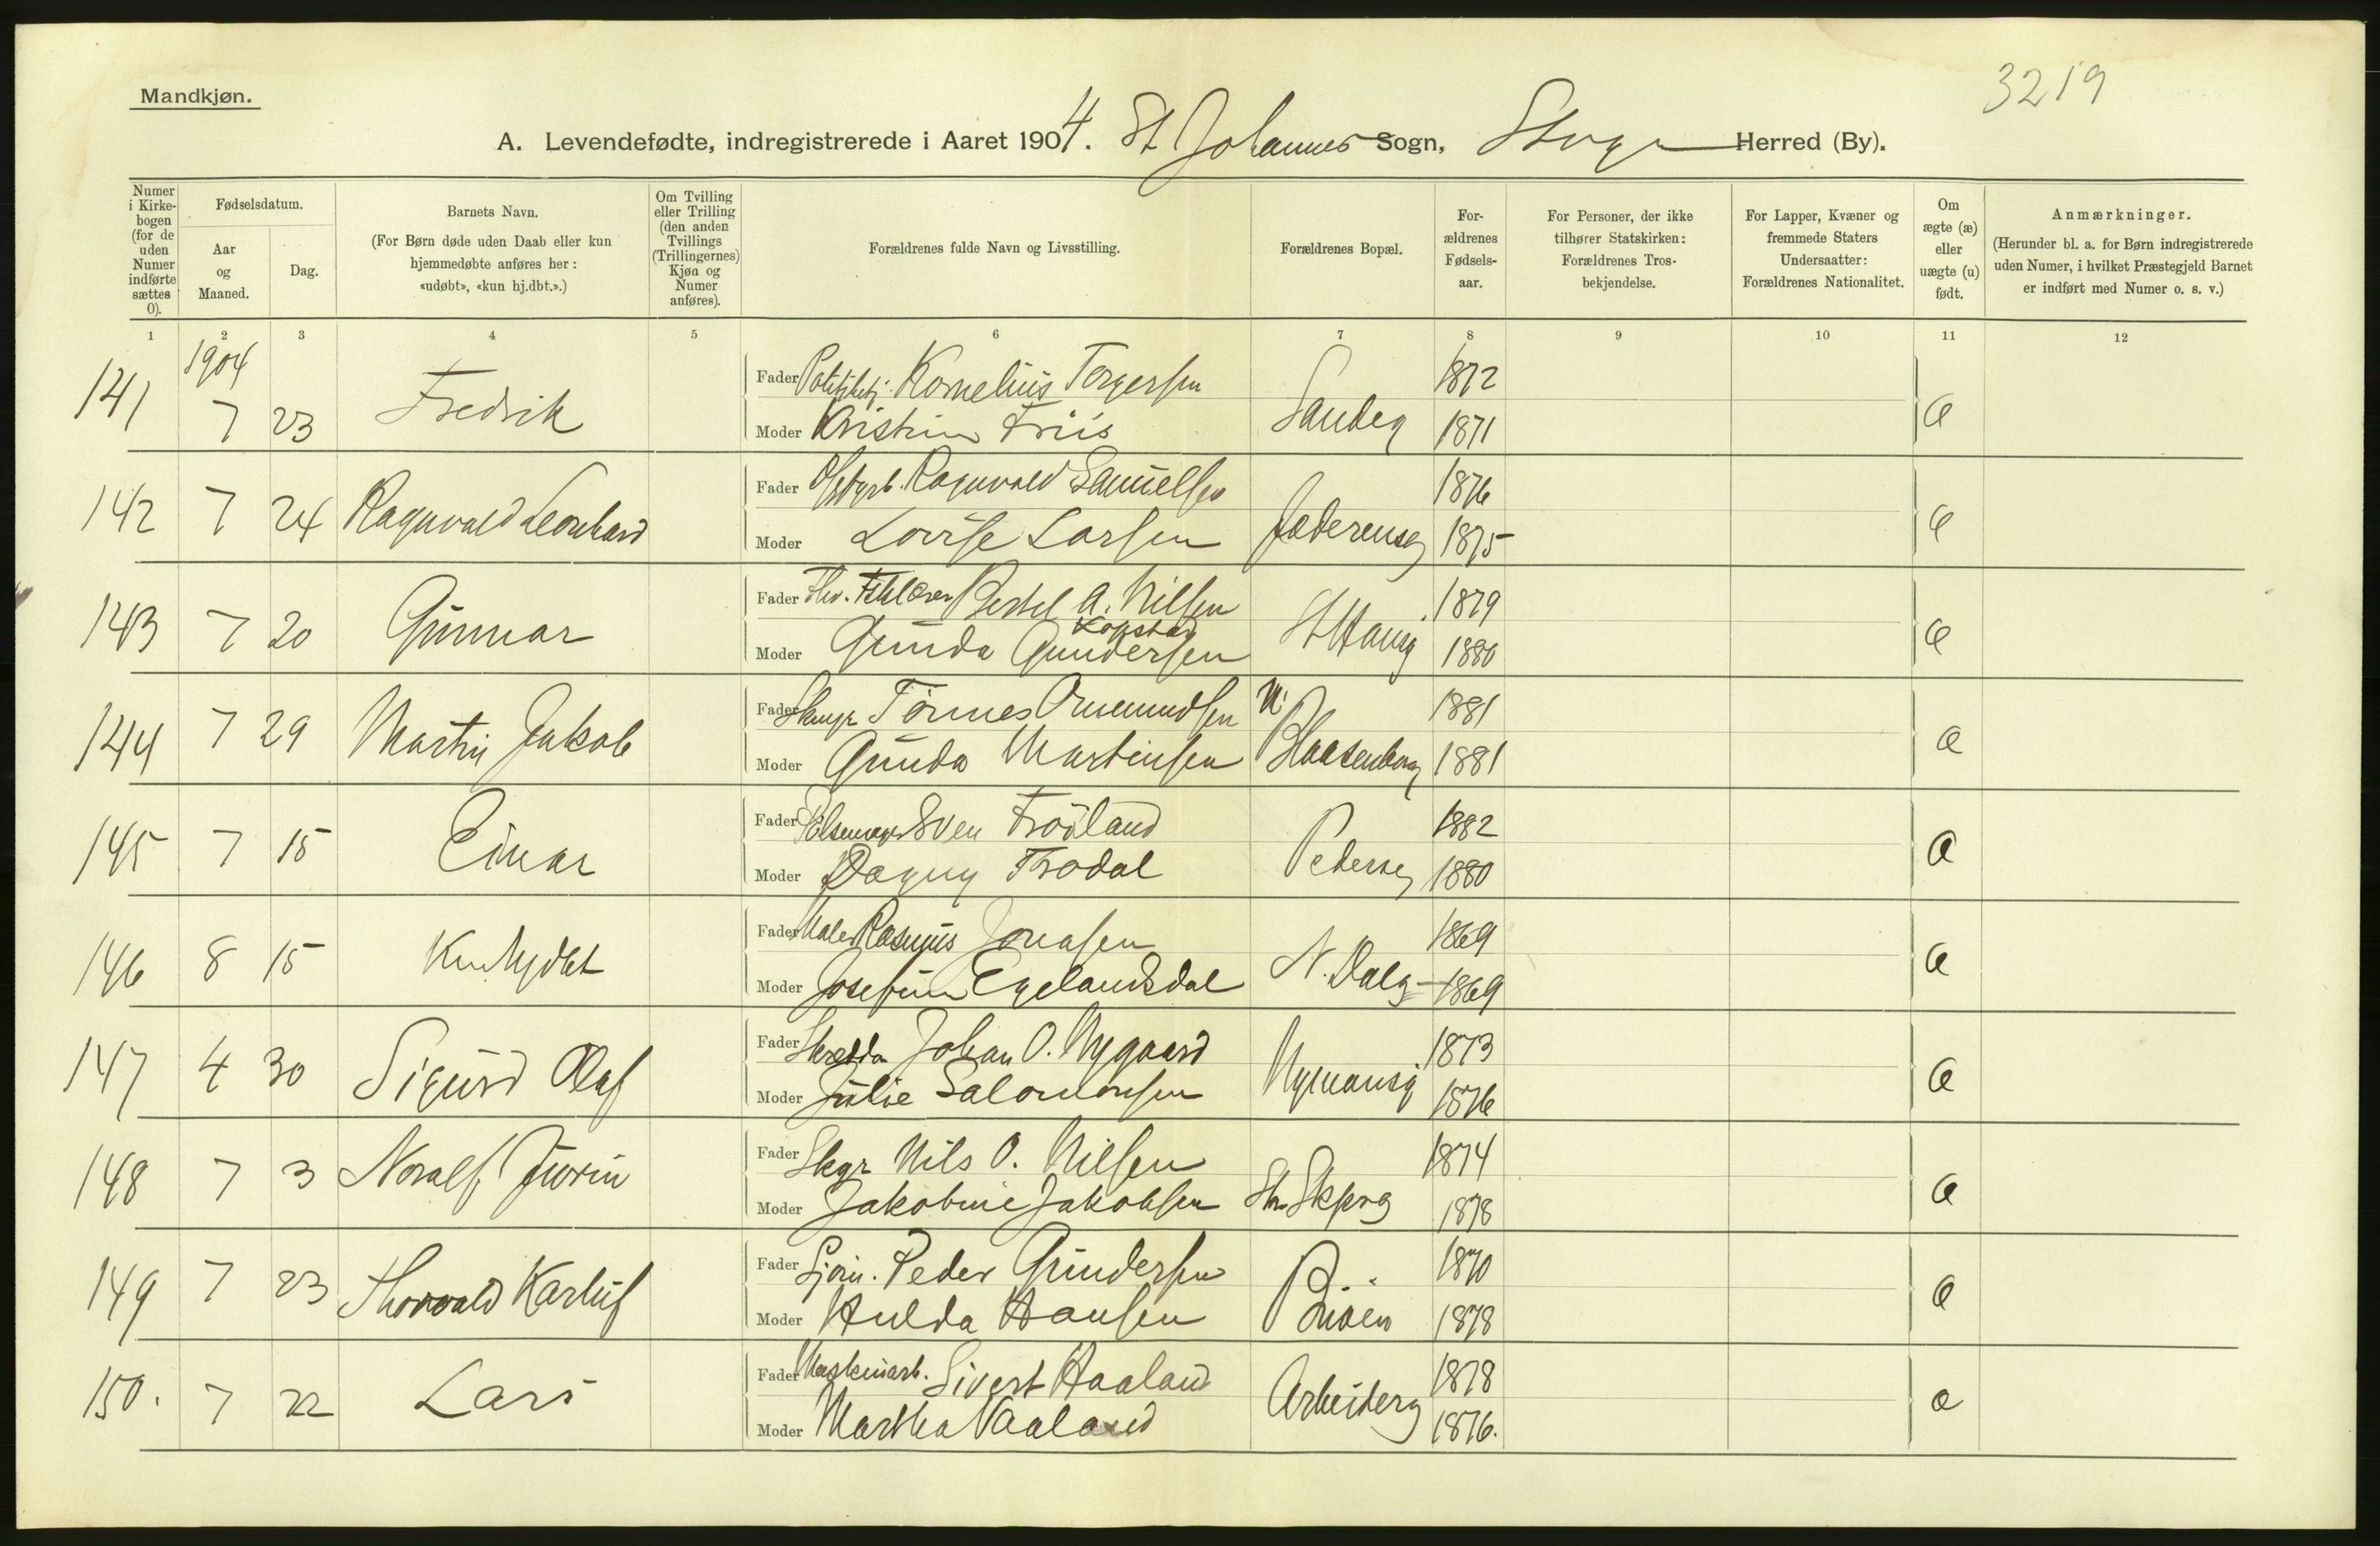 3219
Mandkjøn.
A. Levendefødte, indregistrerede i Aaret 1904. St Johannes Sogn, Herred (By).
Numer i Kirkebogen (for de uden Numer indførte sættes 0).
Fødselsdatum.
Aar og Maaned.
Dag.
Barnets Navn.
(For Børn døde uden Daab eller kun hjemmedøbte anføres her: «udøbt», «kun hj.dbt.».)
Om Tvilling eller Trilling (den anden Tvillings (Trillingernes) Kjøn og Numer anføres).
Forældrenes fulde Navn og Livsstilling.
Forældrenes Bopæl.
Forældrenes Fødselsaar.
For Personer, der ikke tilhører Statskirken: Forældrenes Trosbekjendelse.
For Lapper, Kvæner og fremmede Staters Undersaatter: Forældrenes Nationalitet.
Om ægte (æ) eller uægte (u) født.
Anmærkninger.
(Herunder bl. a. for Børn indregistrerede uden Numer, i hvilket Præstegjeld Barnet er indført med Numer o. s. v.)
1 2 3 4 5 6 7 8 9 10 11 12
1904
141 7 23 Fredrik Fader Kornelius Torgersen 1872
Moder Kristine Friis Sandeg 1871 æ
142 7 24 Ragnvald Leonhard Fader Ragnvald Samuelsen 1876
Moder Lovise Larsen Jæderensg 1875 æ
143 7 20 Gunnar Fader Bertel A. Nilsen 1879
Kopstad
Moder Gunda Gundersen St Hansg 1880 æ
144 7 29 Martin Jakob Fader Tønnes Omemundsen N. 1881
Moder Gunda Martinsen Blaasenborg 1881 æ
145 7 15 Einar Fader Pølsemager Sven Fröiland 1882
Moder Dagny Trodal Pedersg 1880 æ
146 8 15 Kun hjdbt Fader Maler Rasmus Jonasen 1869
Moder Josefine Egelandsdal N. Dalg 1869 æ
147 4 30 Sigurd Olaf Fader Skrædder Johan O. Nygaard 1873
Moder Julie Salomonsen Nymansg 1876 æ
148 7 3 Noralf Jurin Fader Skgr Nils O. Nilsen 1874
Moder Jakobine Jakobsen 1878 æ
149 7 23 Thorvald Karluf Fader Sjöm. Peder Gundersen 1870
Moder Hulda Hansen Buöen 1878 æ
150. 7 22 Lars Fader Maskinarb. Sivert Haaland 1878
Moder Martha Vaaland Arbeiderg 1876. æ